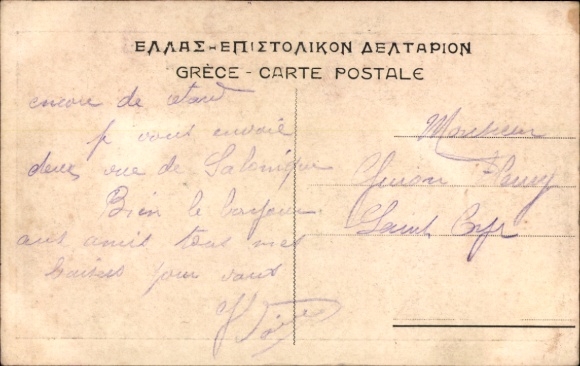 ΕΛΛΑΣ-ΕΠΙΣΤΟΛΙΚΟΝ ΔΕΛΤΑΡΙΟΝ
GRÈCE - CARTE POSTALE
encore de
je vous envoie
deux vue de Salonique
Bien le bonjour
aux amis tous mes
baisers pour vous
Monsieur
Guion Fleury
Saint Cyr